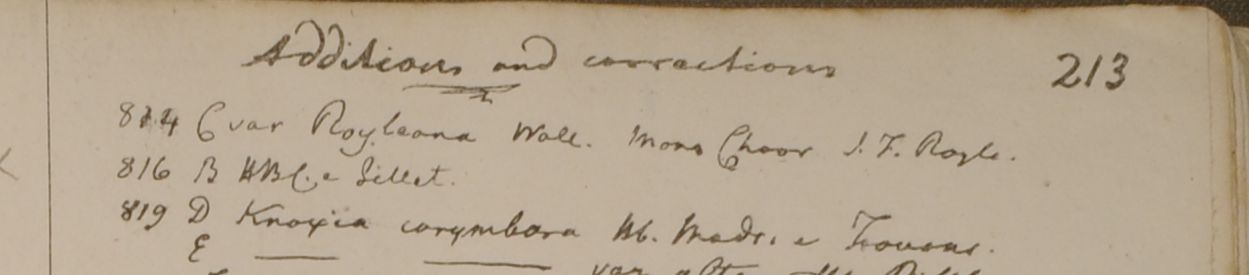 Additions and corrections 213
814 C var Royleana Wall. Mons Choor J. F. Royle.
816 B HBC. e Sillet.
819 D Knoxia corymbosa Hb. Madr. e
E var